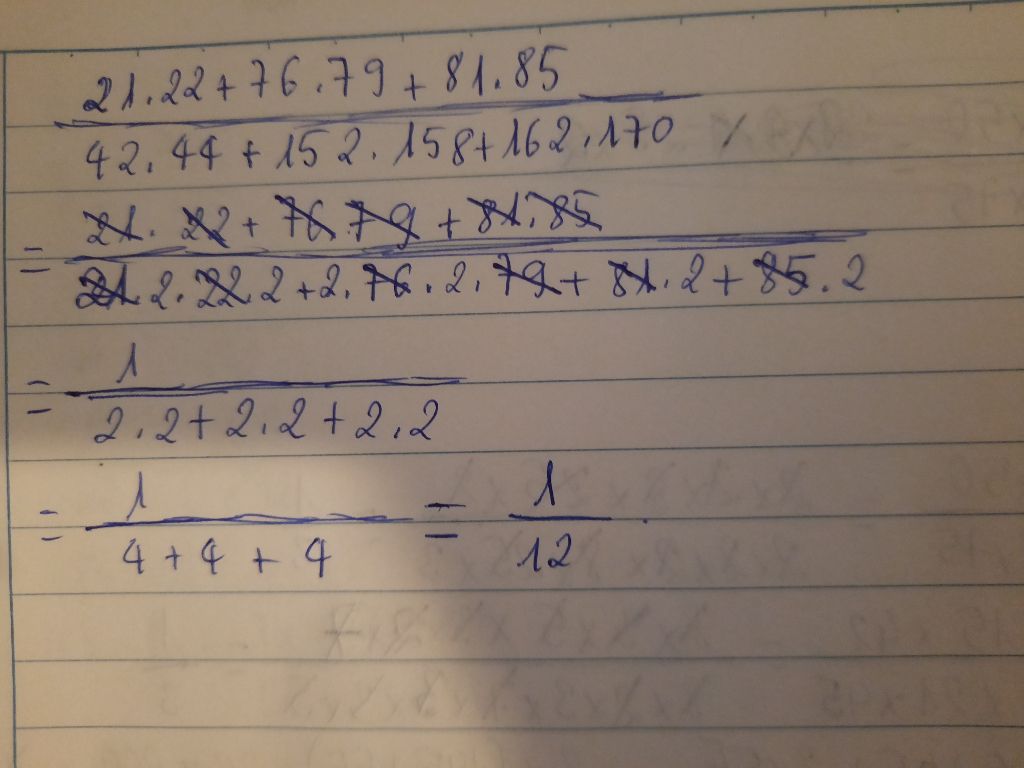 21.22+76.79+81.85
42.44+152.158+162.170
21.22+76.79+81.85
= 21.2.22.2+2.76.2.79+81.2+85.2
1
= 2.2+2.2+2.2
= 1 = 1
4+4+4 12